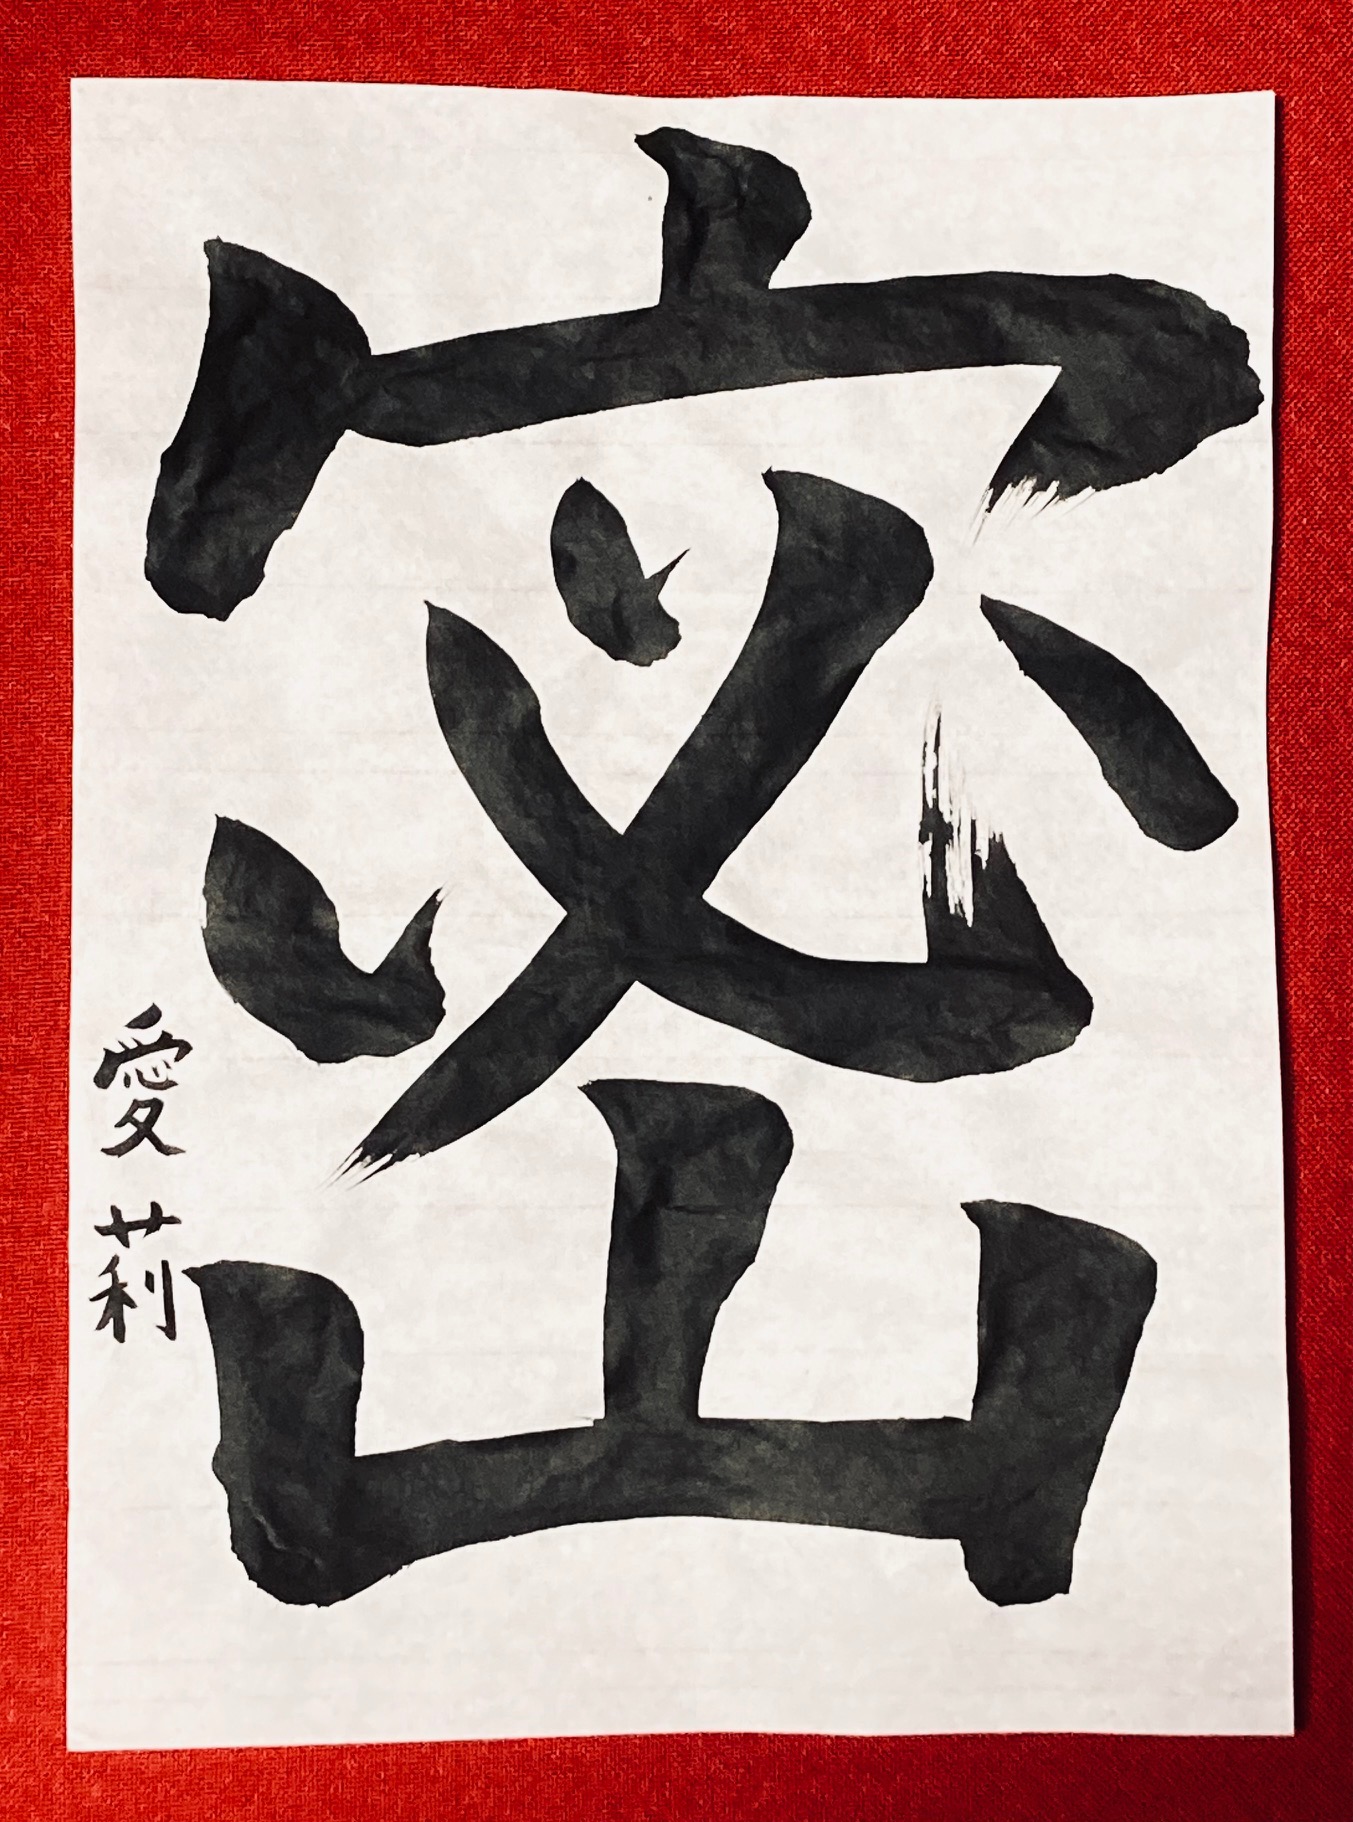 密
愛莉